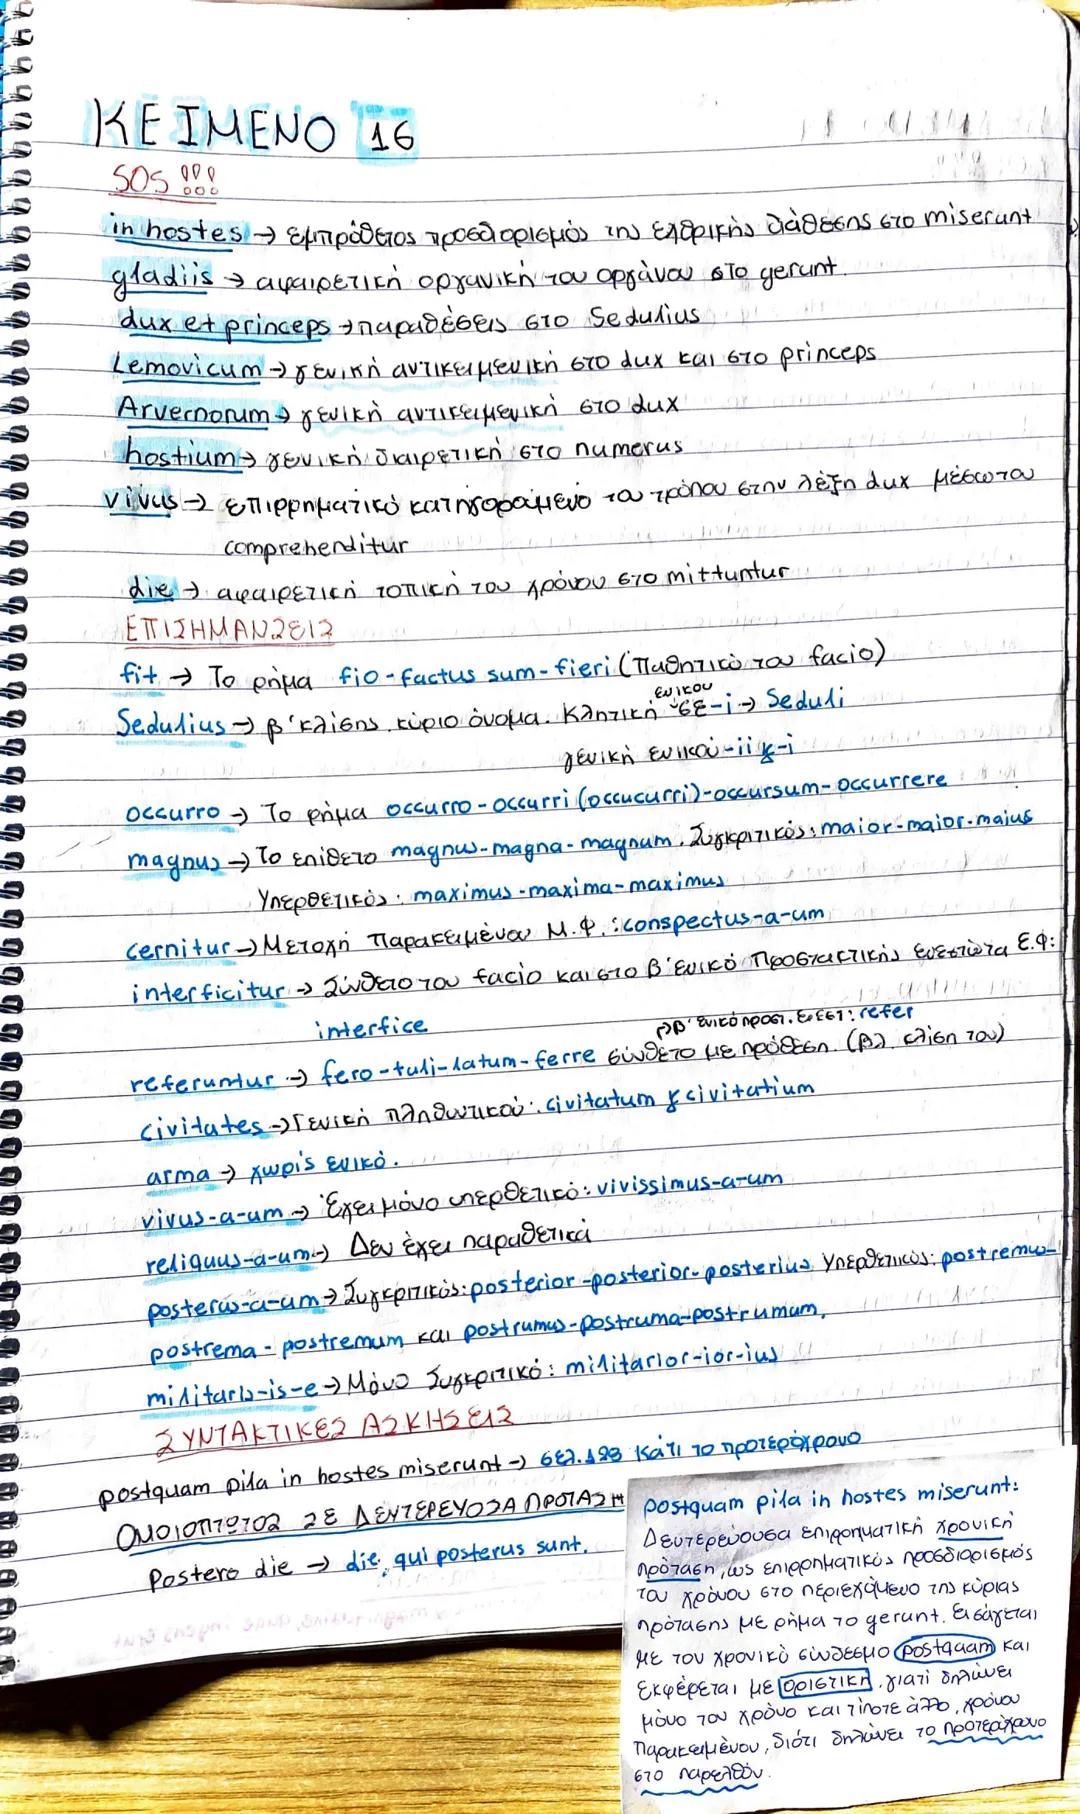 ΚΕΙΜΕΝΟ 16
SOS !!!
in hostes → εμπρόθετος προσδιορισμός της εχθρικής διάθεσης στο miserunt
gladiis → αφαιρετική οργανική του οργάνου στο gerunt.
dux et princeps → παραθέσεις στο Sedulius
Lemovicum → γενική αντικειμενική στο dux και στο princeps
Arvernorum → γενική αντικειμενική στο dux
hostium → γενική διαιρετική στο numerus
vivus → επιρρηματικό κατηγορούμενο του τρόπου στην λέξη dux μέσω του
comprehenditur
die → αφαιρετική τοπική του χρόνου στο mittuntur
ΕΠΙΣΗΜΑΝΣΕΙΣ
fit → Το ρήμα fio-factus sum-fieri (Παθητικό του facio)
ενικού
Sedulius → β' κλίσης κύριο όνομα. Κλητική σε -i → Seduli
γενική ενικού -ii & -i
occurro → Το ρήμα occurro-occurri (occucurri)-occursum-occurrere
magnus → Το επίθετο magnus-magna-magnum. Συγκριτικός: maior-maior-maius
Υπερθετικός: maximus-maxima-maximus
cernitur → Μετοχή Παρακειμένου Μ.Φ.: conspectus-a-um
interficitur → Σύνθετο του facio και στο Β' Ενικό Προστακτικής Ενεστώτα Ε.Φ:
interfice
→β' ενικό προστ. Ενεστ: refer
referuntur → fero-tuli-latum-ferre σύνθετο με πρόθεση. (βλ κλίση του)
civitates → Γενική πληθυντικού: civitatum & civitatium
arma → χωρίς ενικό.
vivus-a-um → Έχει μόνο υπερθετικό: vivissimus-a-um
reliquus-a-um → Δεν έχει παραθετικά
posterus-a-um → Συγκριτικός: posterior-posterior-posterius Υπερθετικός: postremus-
postrema-postremum και postrumus-postruma-postrumum,
militaris-is-e → Μόνο Συγκριτικό: militarior-ior-ius
ΣΥΝΤΑΚΤΙΚΕΣ ΑΣΚΗΣΕΙΣ
postquam pila in hostes miserunt → σελ. 128 κάτι το προτερόχρονο
ΟΜΟΙΟΠΤΩΤΟΣ ΣΕ ΔΕΥΤΕΡΕΥΟΣΑ ΠΡΟΤΑΣΗ
Postero die → die, qui posterus sunt.
postquam pila in hostes miserunt:
Δευτερεύουσα επιρρηματική χρονική
πρόταση, ως επιρρηματικός προσδιορισμός
του χρόνου στο περιεχόμενο της κύριας
πρότασης με ρήμα το gerunt. Εισάγεται
με τον χρονικό σύνδεσμο postquam και
εκφέρεται με οριστική, γιατί δηλώνει
μόνο τον χρόνο και τίποτε άλλο, χρόνου
Παρακειμένου, διότι δηλώνει το προτερόχρονο
στο παρελθόν.